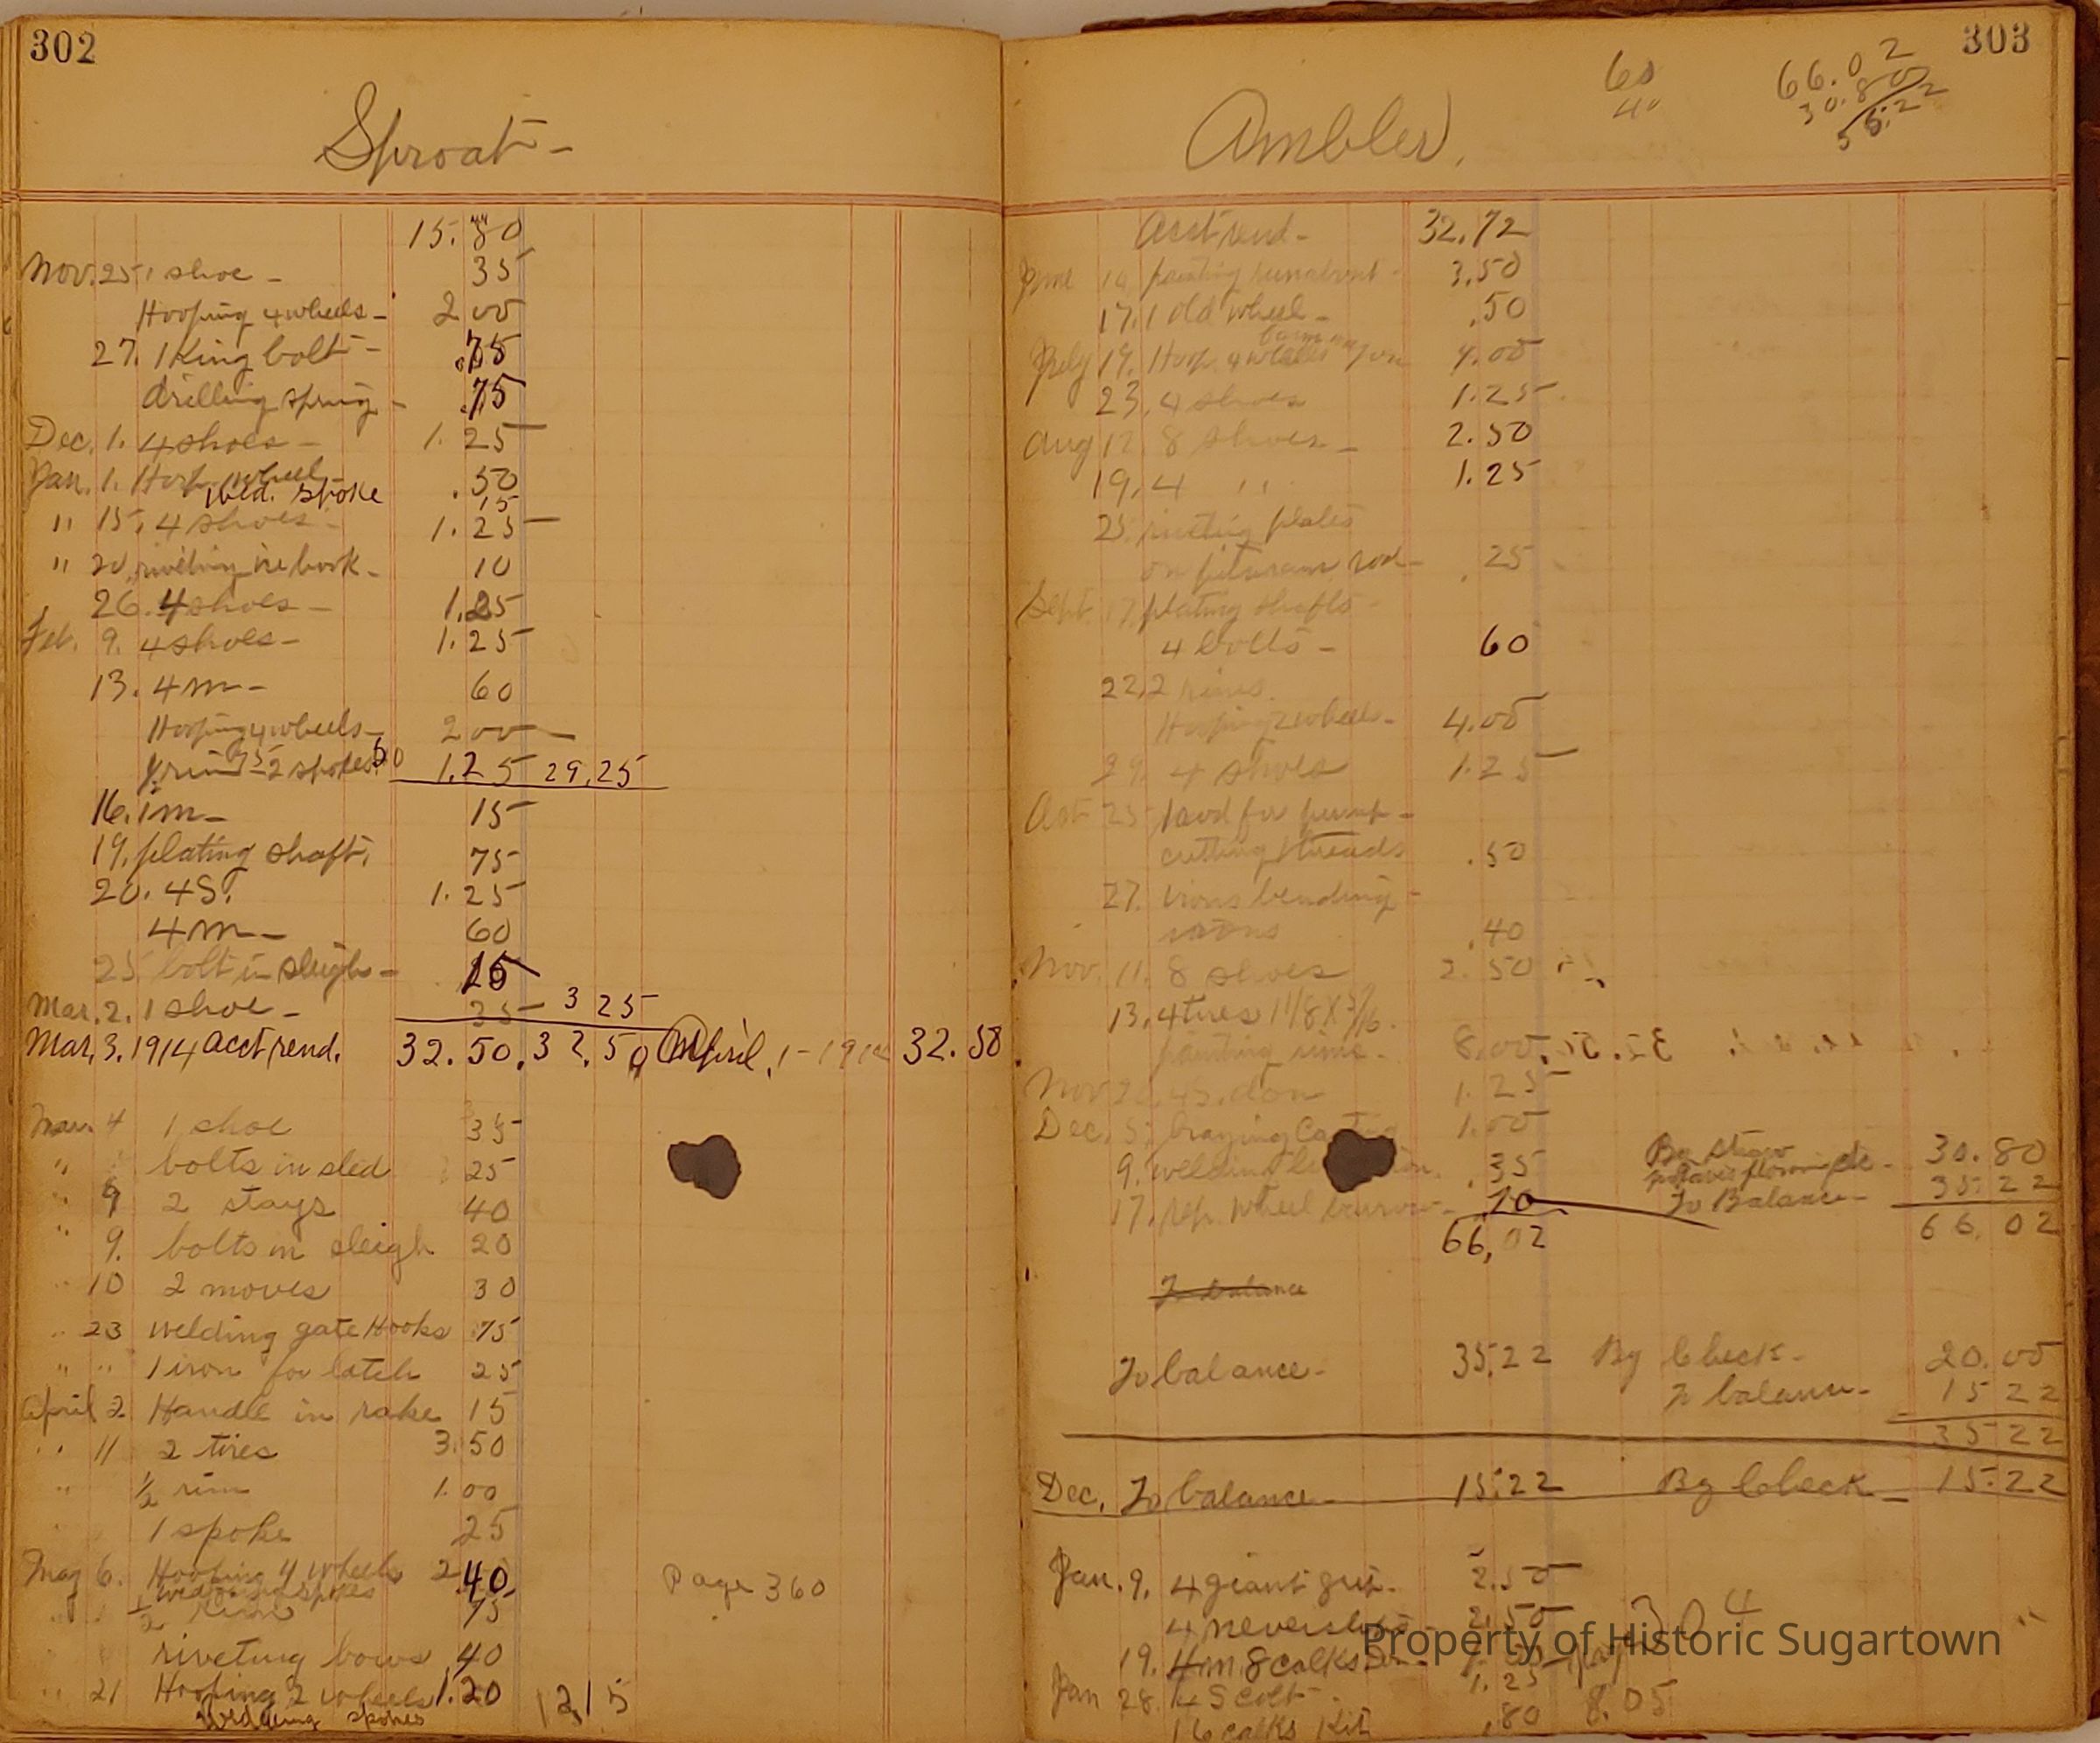 302
Sproat -
15.80
Nov. 25. 1 shoe - 35
Hooping 4 wheels - 2 00
27. 1 King bolt - .75
drilling spring - .75
Dec. 1. 4 shoes - 1.25
Jan. 1. Hoop. wheel .50
Wed. spoke 15
" 15. 4 shoes - 1.25
" 20. riveting 10
26. 4 shoes - 1.25
Feb. 9. 4 shoes - 1.25
13. 4 m - 60
Hooping 4 wheels - 2 00
½ rim 75 - 2 spokes 50 1.25 29.25
16. 1 m - 15
19. plating shaft. 75
20. 4 S. 1.25
4 m - 60
25 bolt in sleigh - 15
Mar. 2. 1 shoe - 35 3 25
Mar. 3. 1914 acct rend. 32.50. 32.50 April, 1 - 1914 32.50
Mar. 4 1 shoe 35
" bolts in sled 25
" 9 2 stays 40
" 9. bolts in sleigh 20
" 10 2 moves 30
" 23 welding gate Hooks 75
" " 1 iron for latch 25
April 2 Handle in rake 15
" 11 2 tires 3.50
" ½ rim 1.00
1 spoke 25
May 6. Hooping 4 wheels 2.40
wedging spokes
" ½ rim 75
riveting bows 40
" 21 Hooping 2 wheels 1.20 12 15
wedging spokes
Page 360
303
60
40
66.02
30.80
Ambler.
Acct rend - 32.72
June 14 painting 3.50
17. 1 old wheel - .50
July 19. Hoop. 4 wheels 4.00
23. 4 shoes 1.25
Aug 12. 8 shoes - 2.50
19. 4 " 1.25
25. plates
on rod - .25
Sept. 17 plating shafts -
4 bolts - 60
22. 2 rims.
Hooping 2 wheels - 4.00
29. 4 shoes 1.25
Oct 25 for pump -
cutting threads .50
27. irons bending -
.40
Nov. 11. 8 shoes 2.50
13. 4 tires 1 1/8 X 3/16.
painting rims. 8.00
Nov 4 S. 1.25
Dec. 5. 1.00
9. welding .35
17. rep. wheel barrow - .20
66.02
By straw 30.80
To Balance - 35.22
66.02
To balance
To balance - 35.22 By Check - 20.00
To balance - 15 22
35 22
Dec. To balance - 15.22 By Check - 15.22
Jan. 9. 4 giant grip. 2.50
4 neverslips - 2.50
19. 4 m. 8 calks
Jan 28. 4 S colt 1.25
16 calks Kit .80 8.05
Property of Historic Sugartown